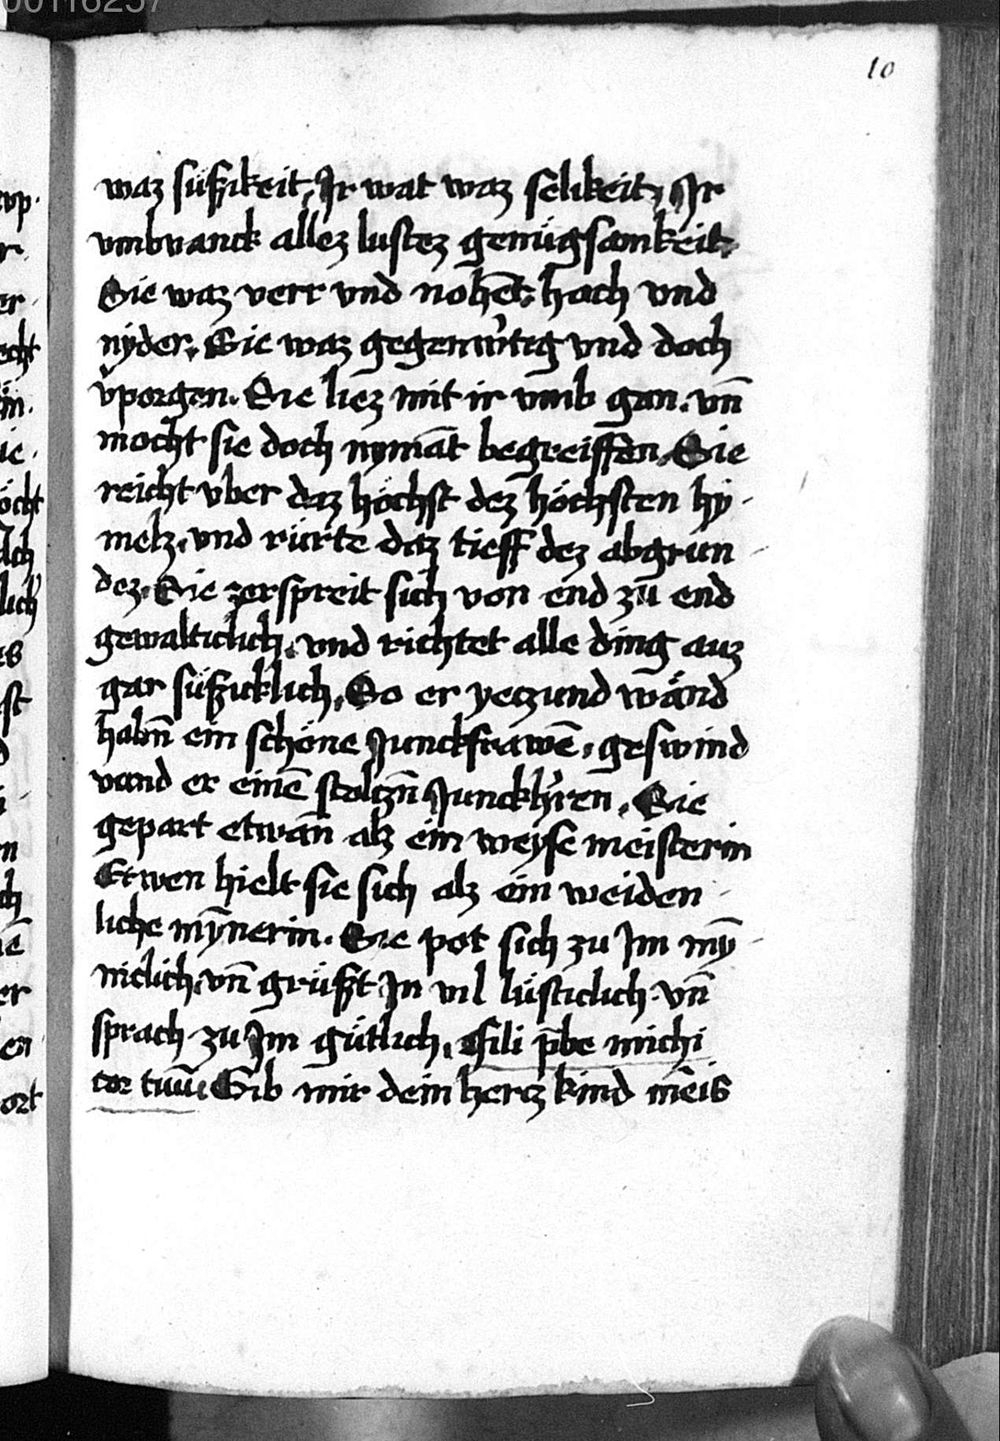 00116257
10
waz süßikeit, Ir wat waz selikeit, Ir
vmbvanck allez lustez genügsamkeit.
Sie waz verr vnd nohēt, hoch vnd
nyder, Sie waz gegenw̉tig vnd doch
v̉porgen. Sie liez mit ir vmb gan. vn̄
mocht sie doch nymāt begreiffen, Sie
reicht vber daz höchst dez höchsten hy-
melz, vnd rürte daz tieff dez abgrun
dez. Sie zerspreit sich von end zu end
gewalticlich, vnd richtet alle ding auz
gar süßicklich, So er yeczund wänd
habn̄ ein schöne Junckfrawē, geswind
vand er einē stolczn̄ Junckh̉ren, Sie
gepart etwan alz ein weyse meisterin
Etwen hielt sie sich alz ein weiden
liche mȳnerin. Sie pot sich zu Im my̅
niclich, vn̄ grüßt In vil lüsticlich. vn̄
sprach zu Im gütlich, Fili p̄be michi
cor tuū. Gib mir dein hercz kind meis